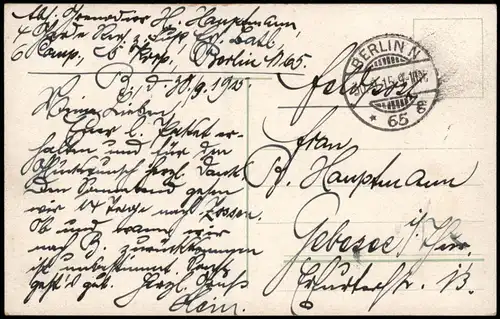 Abs. Grenadier H. Hauptmann,
4 Garde Rgt. z. Fuß Ers. Batl.
6 Comp., Korp., Berlin N. 65.
B. d. 30/9. 1915
Meine Lieben!
Euer l. Paket er-
halten und für den
Glückwunsch herzl. Dank
Den Sonnabend gehen
wir 14 Tage nach Zossen.
Ob und wann wir
nach B. zurückkommen
ist unbestimmt. Sonst
geht's gut. Herzl. Gruß
Hein.
BERLIN N
65
Feldpost
Frau
B. Hauptmann
Gebesee i/Thür.
Erfurterstr. 13.